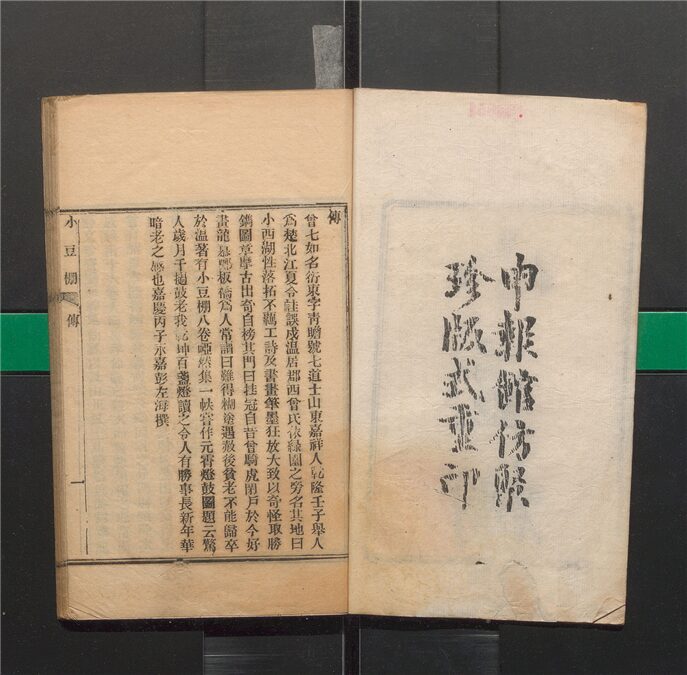 申報館仿照
珍版式重印
傳
曾七如名衍東字青瞻號七道士山東嘉祥人乾隆壬子舉人
爲楚北江夏令詿誤戍溫居郡西曾氏依綠園之旁名其地曰
小西湖性落拓不羈工詩及書畫筆墨狂放大致以奇怪取勝
鐫圖章摩古出奇自榜其門曰挂冠自昔曾騎虎閉戶於今好
畫龍 板橋爲人常誦曰難得糊塗遇赦後貧老不能歸卒
於溫著有小豆棚八卷啞然集一帙嘗作元宵燈鼓圖題云驚
人歲月千撾鼓老我乾坤百盞燈讀之令人有勝事長新年華
暗老之 也嘉慶丙子永嘉彭左海撰
小豆棚 傳 一